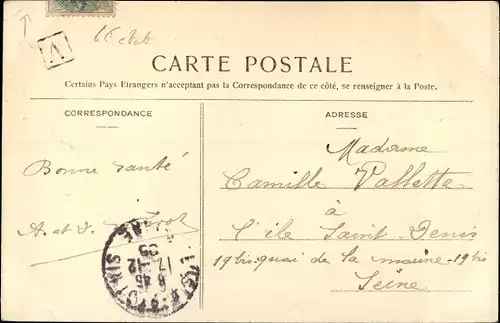 A
CARTE POSTALE
Certains Pays Etrangers n'acceptant pas la Correspondance de ce côté, se renseigner à la Poste.
CORRESPONDANCE
ADRESSE
Madame
Camille Vallette
à
l'île Saint-Denis
19 bis quai de la marine 19 bis
Seine
Bonne santé
A. et J.
17 - 12